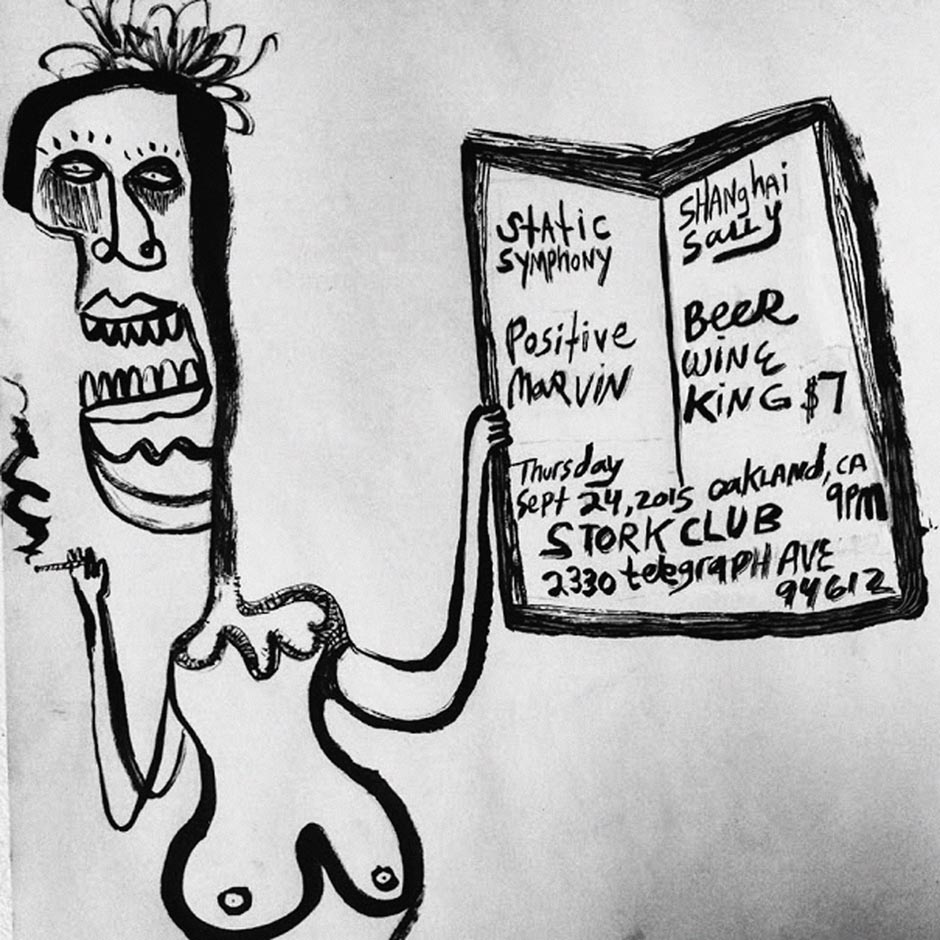 StAtic
SYMPHONY
Positive
MaRViN
SHANghai
SaLLY
BeeR
WiNE
KiNG $7
Thursday
Sept 24, 2015 OaKLANd, CA
9PM
STORK CLUB
2330 telegraPH AVE
94612